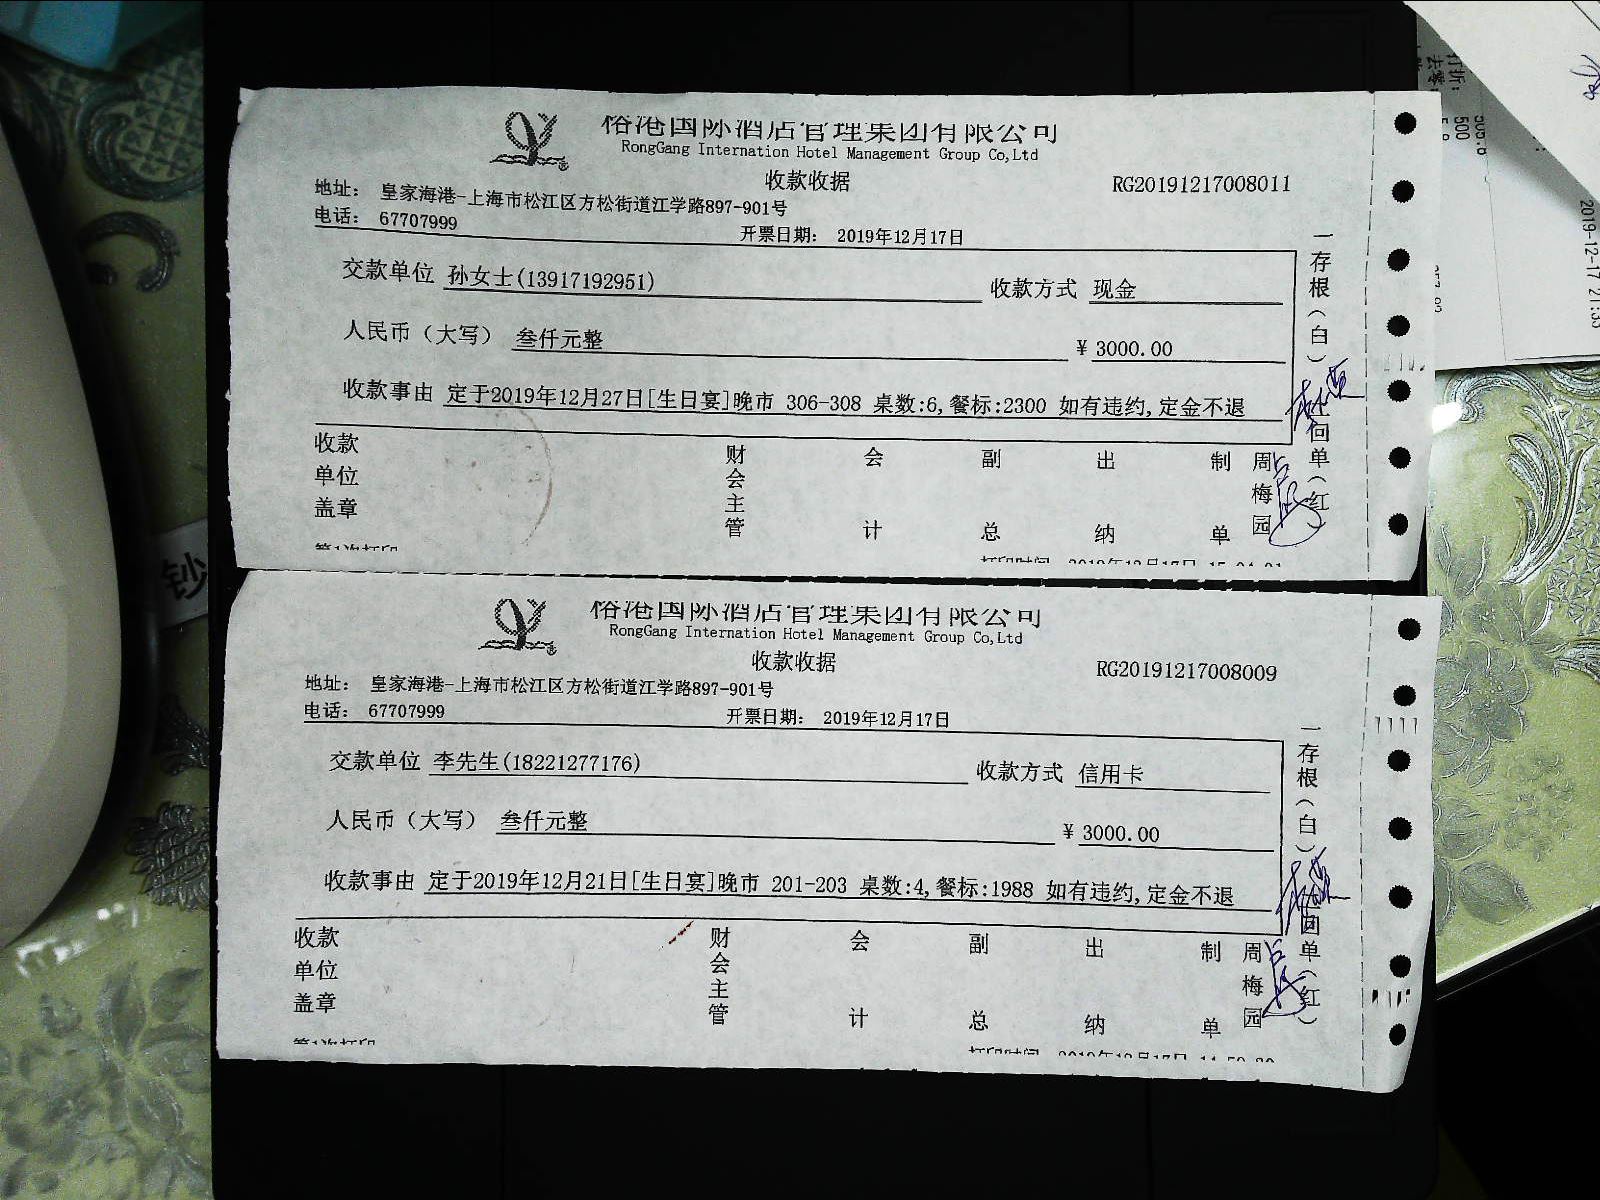 榕港国际酒店管理集团有限公司
RongGang Internation Hotel Management Group Co,Ltd
收款收据
RG20191217008011
地址： 皇家海港-上海市松江区方松街道江学路897-901号
电话： 67707999
开票日期： 2019年12月17日
交款单位 孙女士(13917192951) 收款方式 现金
人民币（大写） 叁仟元整 ¥ 3000.00
收款事由 定于2019年12月27日[生日宴]晚市 306-308 桌数:6,餐标:2300 如有违约,定金不退
收款单位盖章 财会主管 会计 副总 出纳 制单 周梅园
第1次打印
打印时间 2019年12月17日
一存根（白）
回单（红
榕港国际酒店管理集团有限公司
RongGang Internation Hotel Management Group Co,Ltd
收款收据
RG20191217008009
地址： 皇家海港-上海市松江区方松街道江学路897-901号
电话： 67707999
开票日期： 2019年12月17日
交款单位 李先生(18221277176) 收款方式 信用卡
人民币（大写） 叁仟元整 ¥ 3000.00
收款事由 定于2019年12月21日[生日宴]晚市 201-203 桌数:4,餐标:1988 如有违约,定金不退
收款单位盖章 财会主管 会计 副总 出纳 制单 周梅园
第1次打印
打印时间 2019年12月17日
一存根（白）
回单（红）
钞
打折:
500
2019-12-17